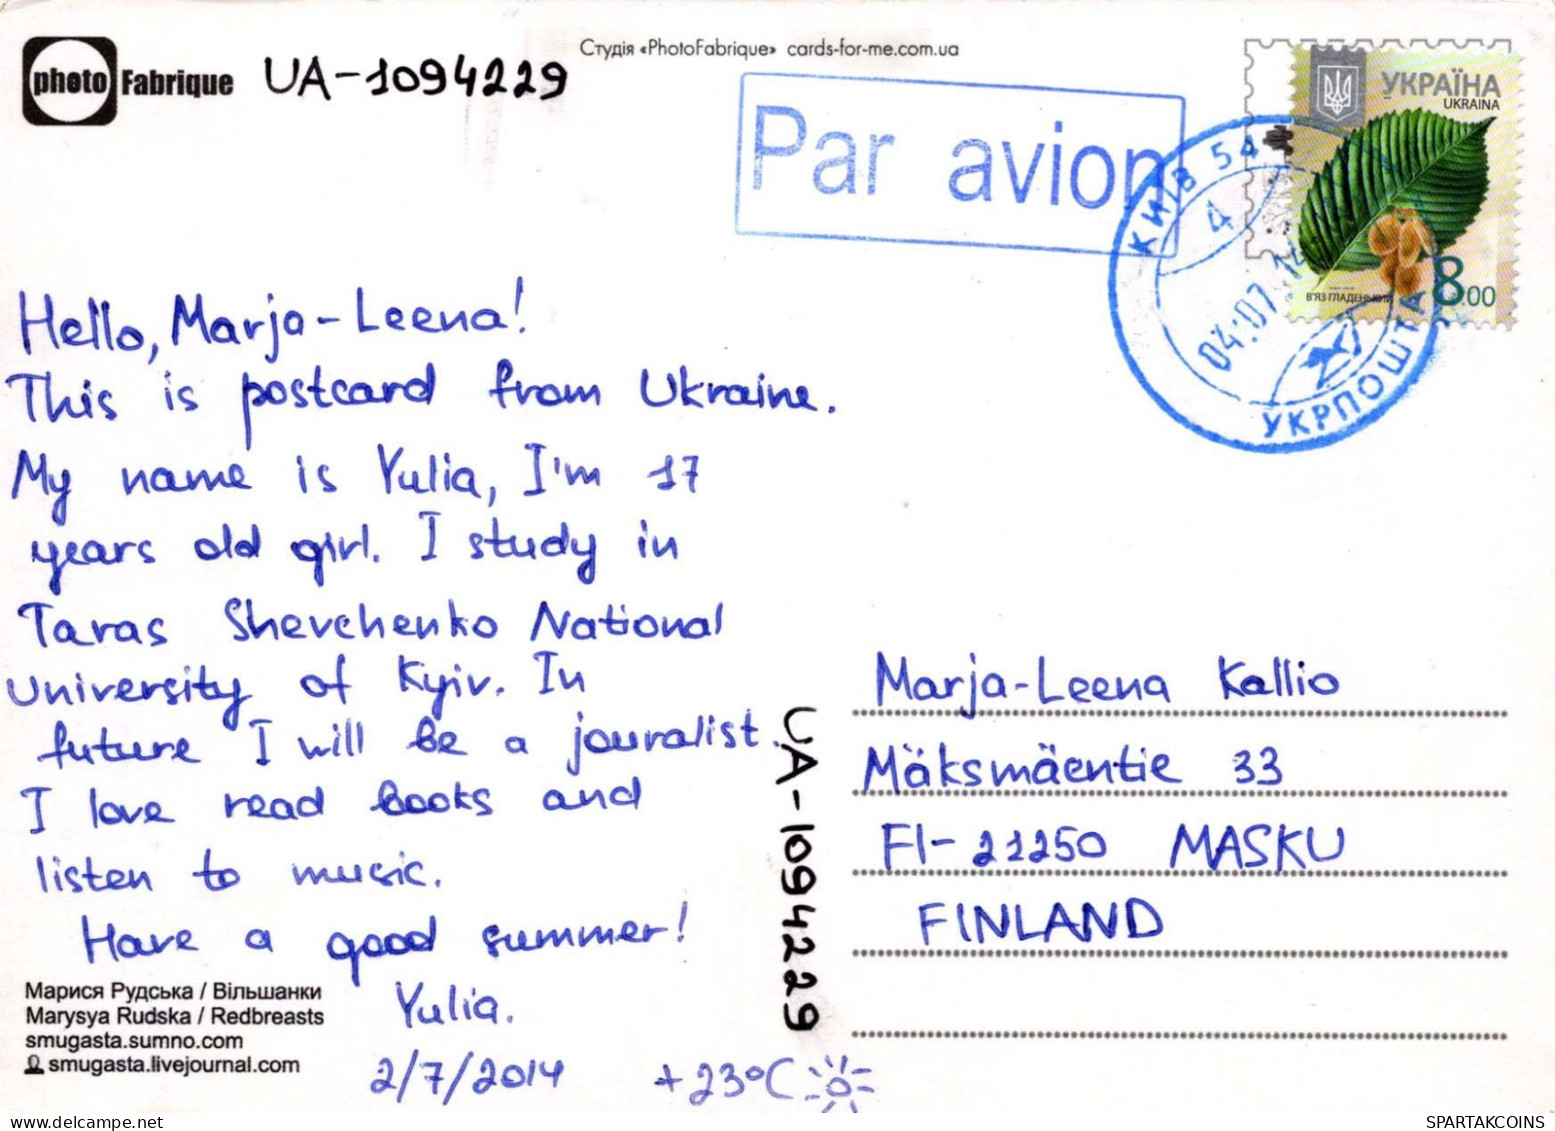 photo Fabrique
UA-1094229
Студія «PhotoFabrique» cards-for-me.com.ua
Par avion
УКРАЇНА
UKRAINA
В'ЯЗ ГЛАДЕНЬКИЙ
8.00
КИЇВ 54
4
04.07.14
УКРПОШТА
Hello, Marja-Leena!
This is postcard from Ukraine.
My name is Yulia, I'm 17
years old girl. I study in
Taras Shevchenko National
University of Kyiv. In
future I will be a jouralist.
I love read books and
listen to music.
Have a good summer!
Yulia.
2/7/2014 +23°C
Марися Рудська / Вільшанки
Marysya Rudska / Redbreasts
smugasta.sumno.com
smugasta.livejournal.com
UA-1094229
Marja-Leena Kallio
Mäksmäentie 33
FI-21250 MASKU
FINLAND
SPARTAKCOINS